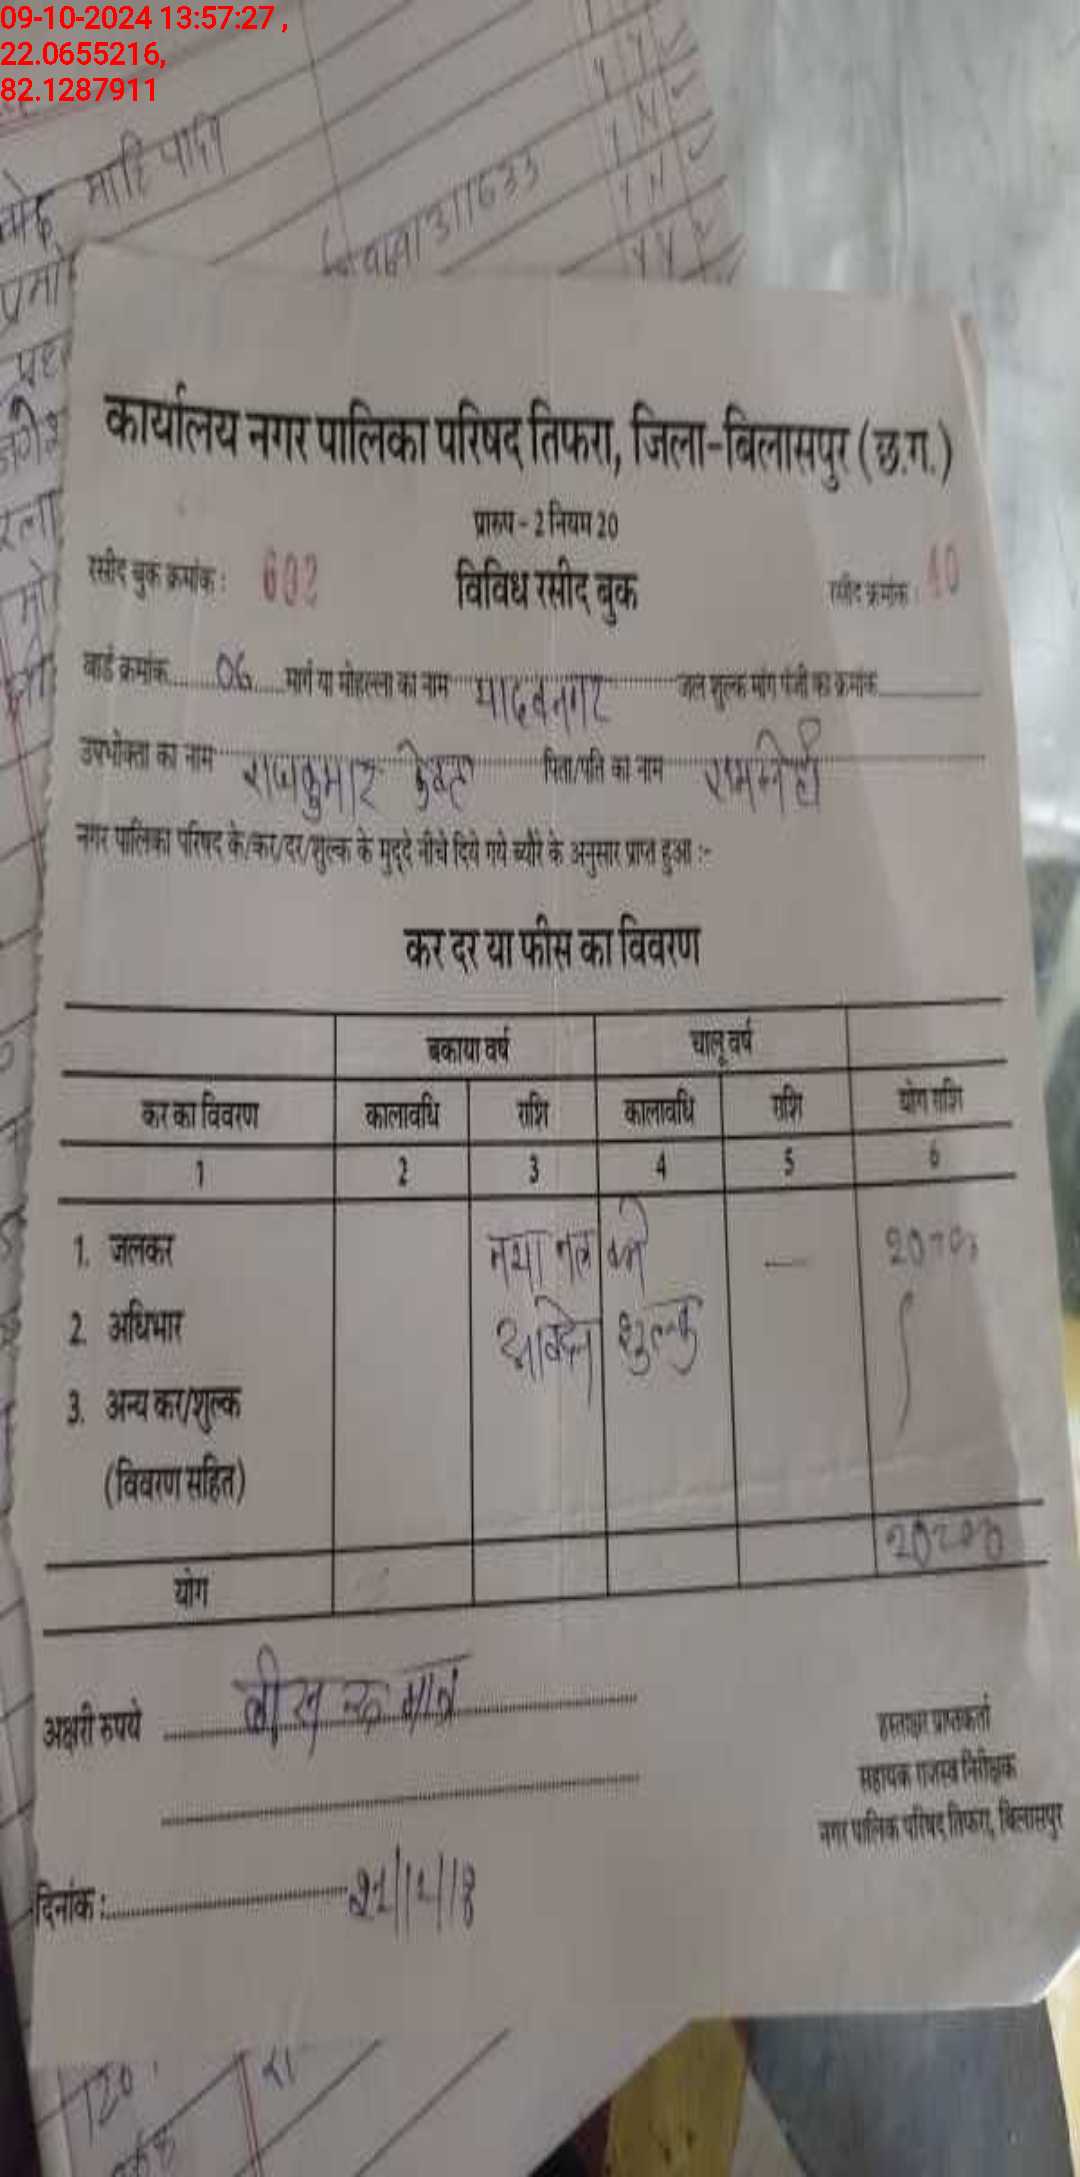 09-10-2024 13:57:27 ,
22.0655216,
82.1287911
कार्यालय नगर पालिका परिषद तिफरा, जिला-बिलासपुर (छ.ग.)
प्रारुप - 2 नियम 20
रसीद बुक क्रमांक : 602 विविध रसीद बुक रसीद क्रमांक : 40
वार्ड क्रमांक 06 मार्ग या मोहल्ला का नाम यादवनगर जल शुल्क मांग पंजी का क्रमांक
उपभोक्ता का नाम राजकुमार केवट पिता/पति का नाम
नगर पालिका परिषद के/कर/दर/शुल्क के मुद्दे नीचे दिये गये ब्यौरे के अनुसार प्राप्त हुआ :-
कर दर या फीस का विवरण
बकाया वर्ष चालू वर्ष
कर का विवरण कालावधि राशि कालावधि राशि योग राशि
1 2 3 4 5 6
1. जलकर नया नल का — 20=00
2. अधिभार आवेदन शुल्क
3. अन्य कर/शुल्क
(विवरण सहित)
20=00
योग
अक्षरी रुपये बीस रु. मात्र
हस्ताक्षर प्राप्तकर्ता
सहायक राजस्व निरीक्षक
नगर पालिक परिषद तिफरा, बिलासपुर
दिनांक :